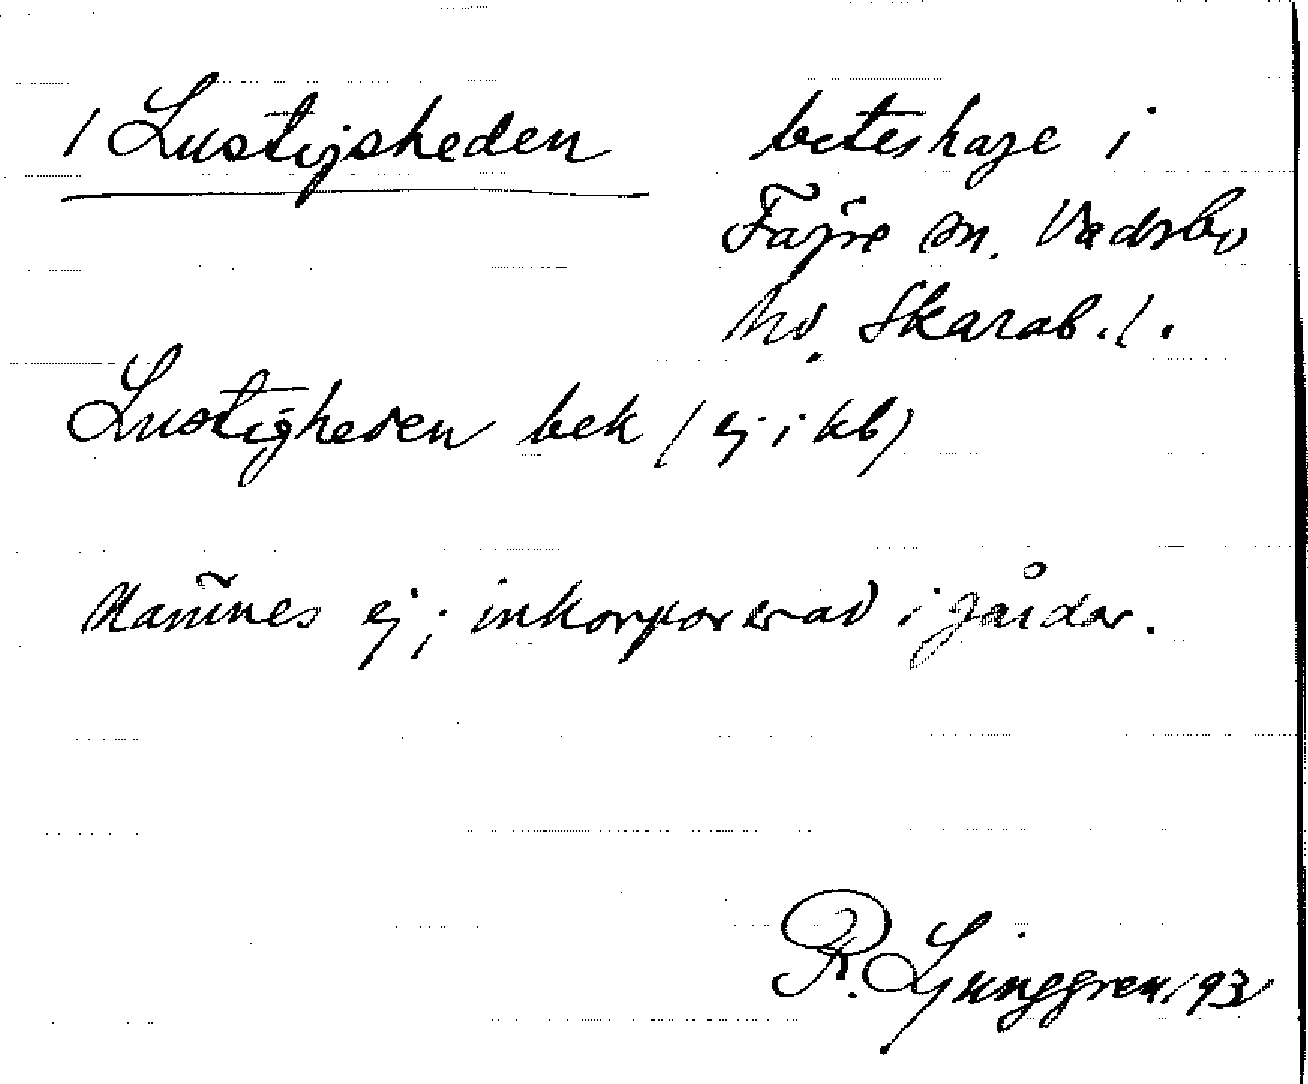 / Lustigsheden beteshage i
Fägre sn. Vadsbo
hd. Skarab. l.
Lustigheden bek (ej i kb)
Kannes ej; inkorporerad i gårdar.
R. Ljunggren 193